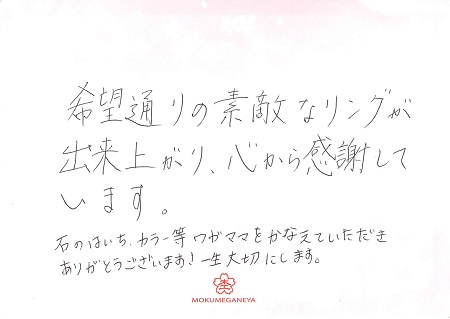 希望通りの素敵なリングが
出来上がり、心から感謝して
います。
石のはいち、カラー等 ワガママをかなえていただき
ありがとうございます! 一生大切にします。
MOKUMEGANEYA